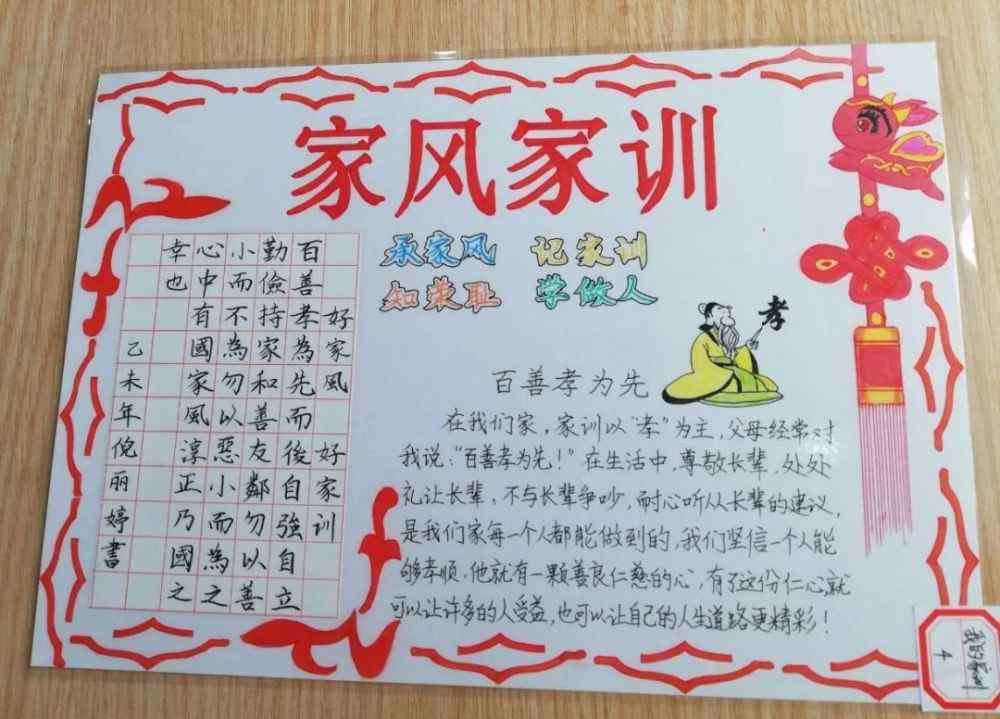 家风家训
承家风 记家训
知荣耻 学做人
好家風 好家訓
百善孝為先而後自強自立
勤儉持家和善友鄰勿以善
小而不為勿以惡小而為之
心中有國家風淳正乃國之
幸也
乙未年倪丽婷書
孝
百善孝为先
在我们家，家训以“孝”为主，父母经常对
我说：“百善孝为先！”在生活中，尊敬长辈，处处
礼让长辈，不与长辈争吵，耐心听从长辈的建议，
是我们家每一个人都能做到的，我们坚信一个人能
够孝顺，他就有一颗善良仁慈的心，有了这份仁心，就
可以让许多的人受益，也可以让自己的人生道路更精彩！
我的家训
4